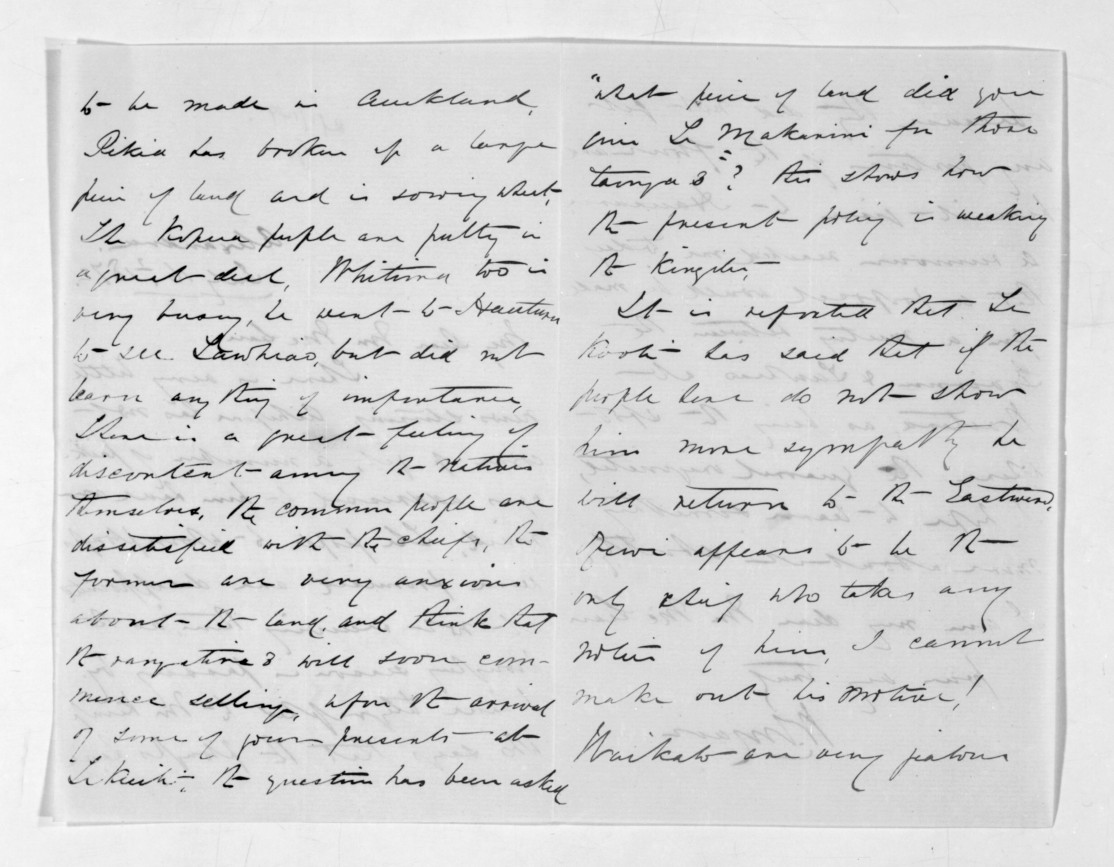 to be made in Auckland,
Pikia has broken up a large
piece of land and is sowing wheat,
The Kopua people are putting in
a great deal, Whitiora too is
very busy, he went to Hauturu
to see Tawhiao, but did not
learn anything of importance,
There is a great feeling of
discontent among the natives
themselves, the common people are
dissatisfied with the chiefs, the
former are very anxious
about the land, and think that
the rangatiras will soon com-
mence selling, upon the arrival
of some of your presents at
Te Kuiti, the question has been asked
"what piece of land did you
give Te Makarini for those
taonga s"? this shows how
the present policy is weaking
the Kingites,
It is reported that Te
Kooti has said that if the
people here do not show
him more sympathy he
will return to the Eastward,
Rewi appears to be the
only chief who takes any
notice of him, I cannot
make out his motive!
Waikato are very jealous